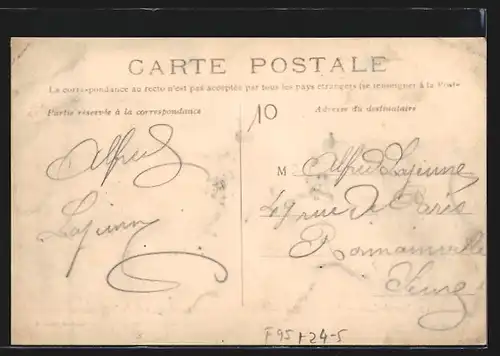 CARTE POSTALE
La correspondance au recto n'est pas acceptée par tous les pays étrangers (se renseigner à la Poste
Partie réservée à la correspondance
Adresse du destinataire
10
Alfred
Lajeune
M Alfred Lajeune
49 rue de Paris
Romainville
Seine
F95 + 24-5